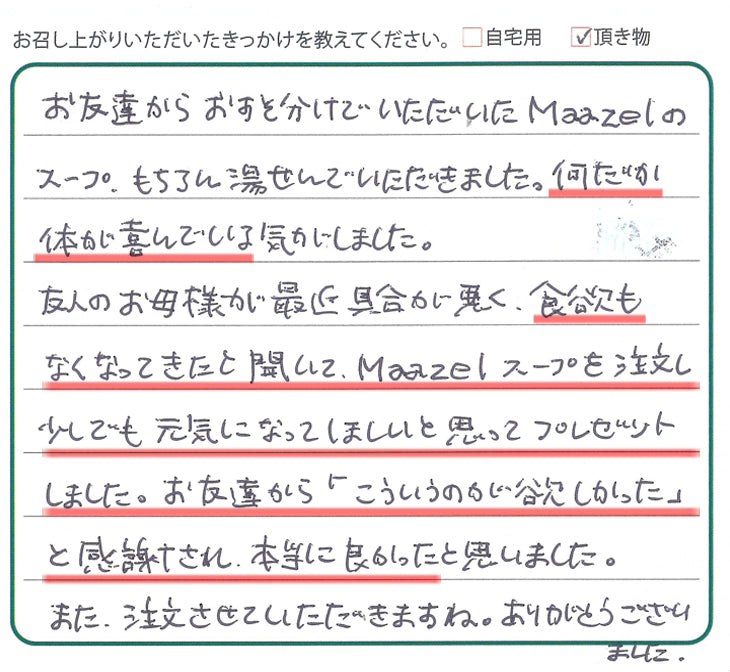 お召し上がりいただいたきっかけを教えてください。 自宅用 頂き物
お友達から おすそ分けで いただいた Maazelの
スープ、もちろん 湯せんで いただきました。何だか
体が喜んでいる 気がしました。
友人の お母様が 最近 具合が 悪く、食欲も
なくなってきたと 聞いて、Maazel スープを 注文し
少しでも 元気になってほしいと 思って プレゼント
しました。お友達から「こういうのが欲しかった」
と感謝され、本当に 良かったと思いました。
また、注文させていただきますね。ありがとうござい
ました.